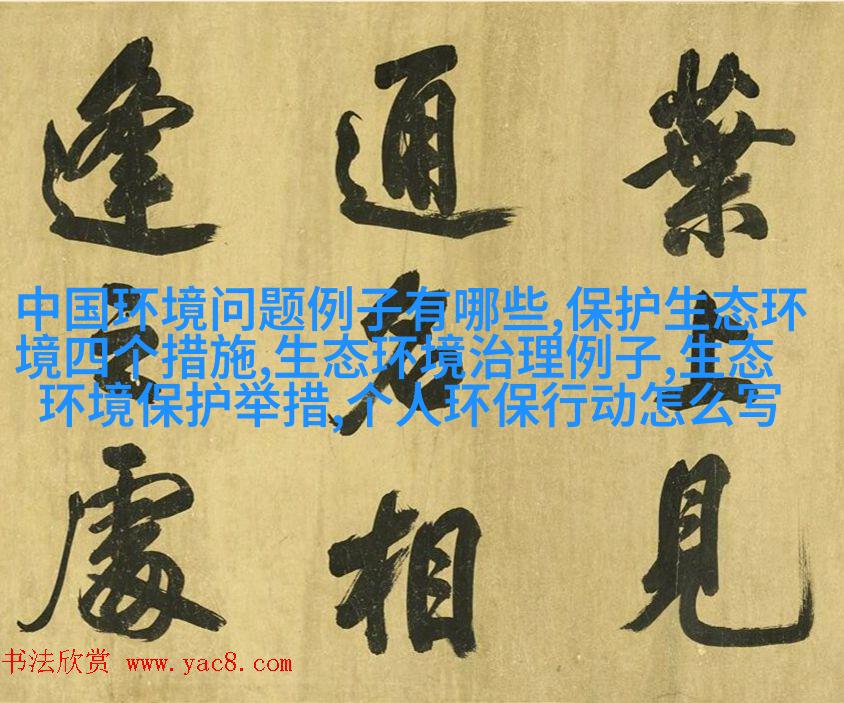 葉上見
通相
逢處
中国环境问题例子有哪些,保护生态环
境四个措施,生态环境治理例子,生态
环境保护举措,个人环保行动怎么写
书法欣赏 www.yac8.com